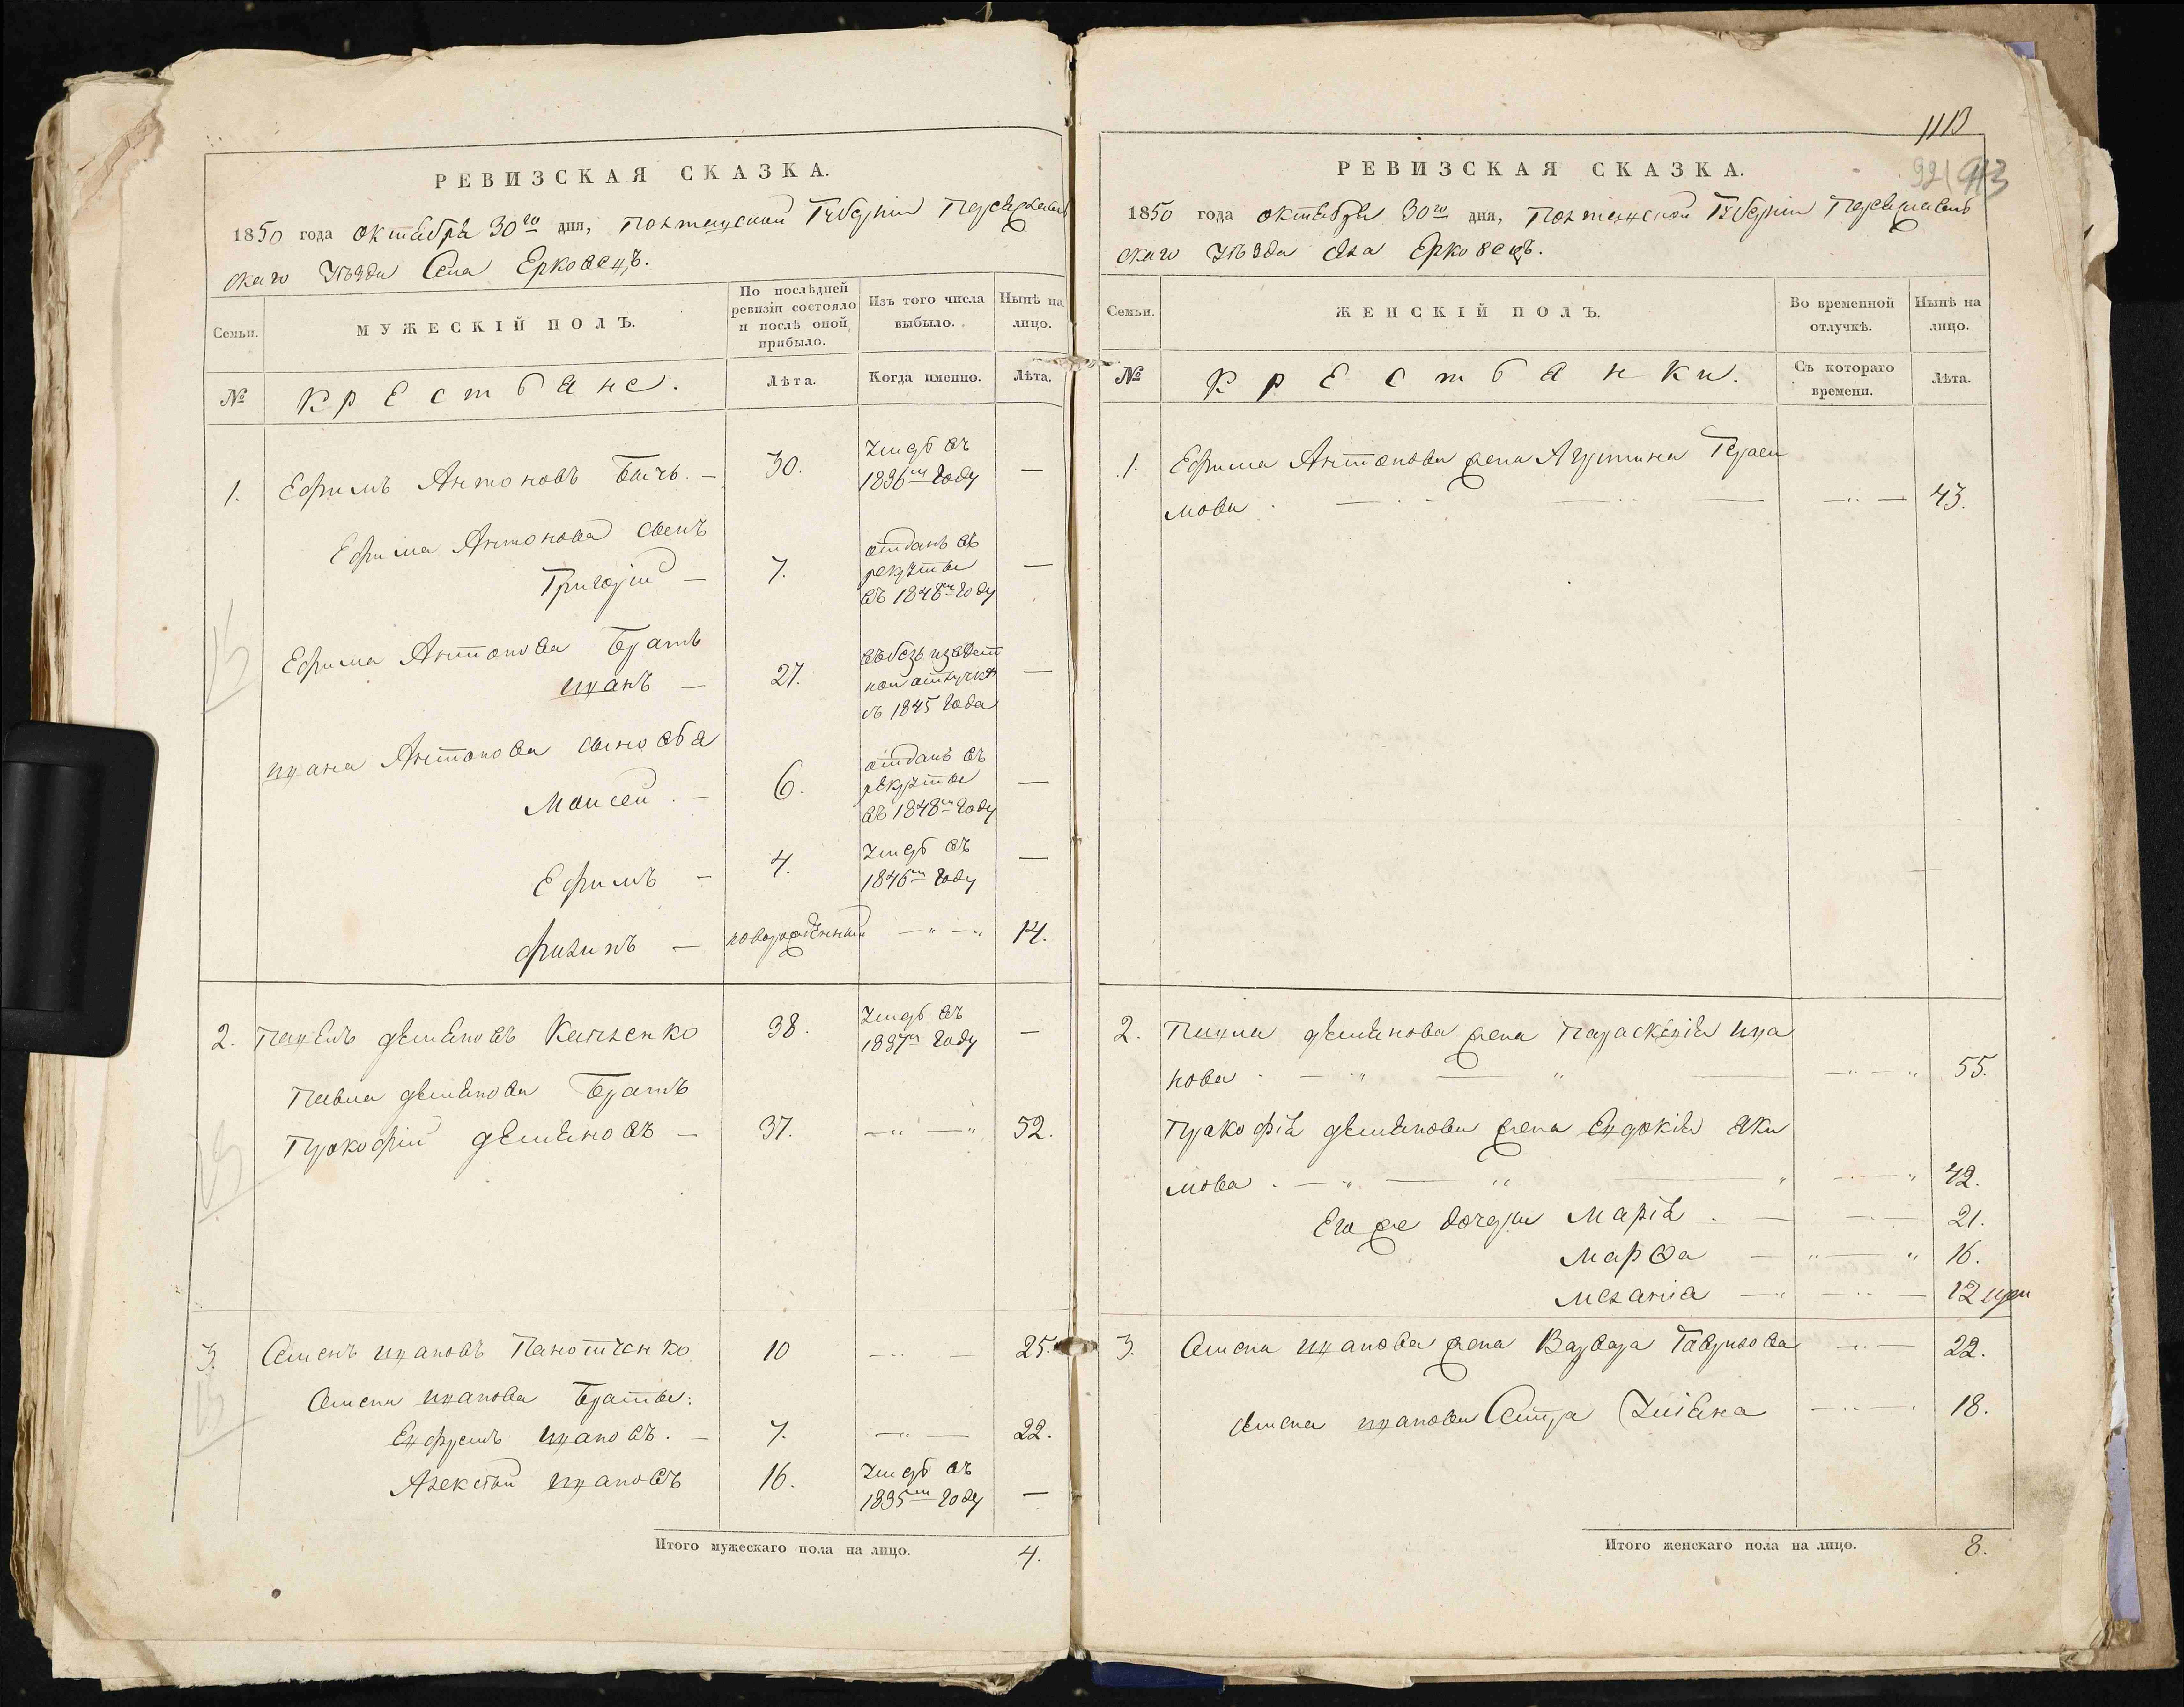 РЕВИЗСКАЯ СКАЗКА.
1850 года октября 30го дня, Полтавской Губерніи Переяслав
скаго Уѣзда Села Ерковецъ.
Семьи.
МУЖЕСКІЙ ПОЛЪ.
По послѣдней
ревизіи состояло
и послѣ оной
прибыло.
Изъ того числа
выбыло.
Нынѣ на
лицо.
№
Крестьяне.
Лѣта.
Когда именно.
Лѣта.
1. Ефимъ Антоновъ Бычъ. — 30. умеръ въ
1836мъ году —
Ефима Антонова сынъ
Григорій — 7. отданъ въ
рекруты
въ 1848мъ году —
Ефима Антонова братъ
Иванъ — 27. въ безъизвѣст
ной отлучкѣ
съ 1845 года —
Ивана Антонова сыновья
Моисей . — 6. отданъ въ
рекруты
въ 1848мъ году —
Ефимъ — 4. умеръ въ
1846мъ году —
Филипъ — новорожденный — „ — „ 14.
2. Павелъ Демяновъ 38. умеръ въ
1837мъ году —
Павла Демянова братъ
Прокофій Демяновъ — 37. — „ — „ 52.
3. Семенъ Ивановъ 10 — „ — 25.
Семена Иванова братья:
Ивановъ. — 7. — „ — 22.
Алексѣй Ивановъ 16. умеръ въ
1835мъ году —
Итого мужескаго пола на лицо. 4.
1113
921 913
РЕВИЗСКАЯ СКАЗКА.
1850 года октября 30го дня, Полтавской Губерніи Переяслав
скаго Уѣзда села Ерковецъ.
Семьи.
ЖЕНСКІЙ ПОЛЪ.
Во временной
отлучкѣ.
Нынѣ на
лицо.
№
Крестьянки.
Съ котораго
времени.
Лѣта.
1. Ефима Антонова жена Герси
мова . — „ — 43.
2. Павла Демянова жена Параскевія Ива
нова . — „ — „ — „ — „ 55.
Прокофія Демянова жена Евдокія Яки
мова . — „ — „ — „ 42.
Его же дочери Марія . — 21.
Марѳа — „ — „ 16.
Меланія — „ — „ — 12
3. Семена Иванова жена Варвара Гаврилова — „ — 22.
Семена Иванова сестра Уліяна — „ — 18.
Итого женскаго пола на лицо. 8.